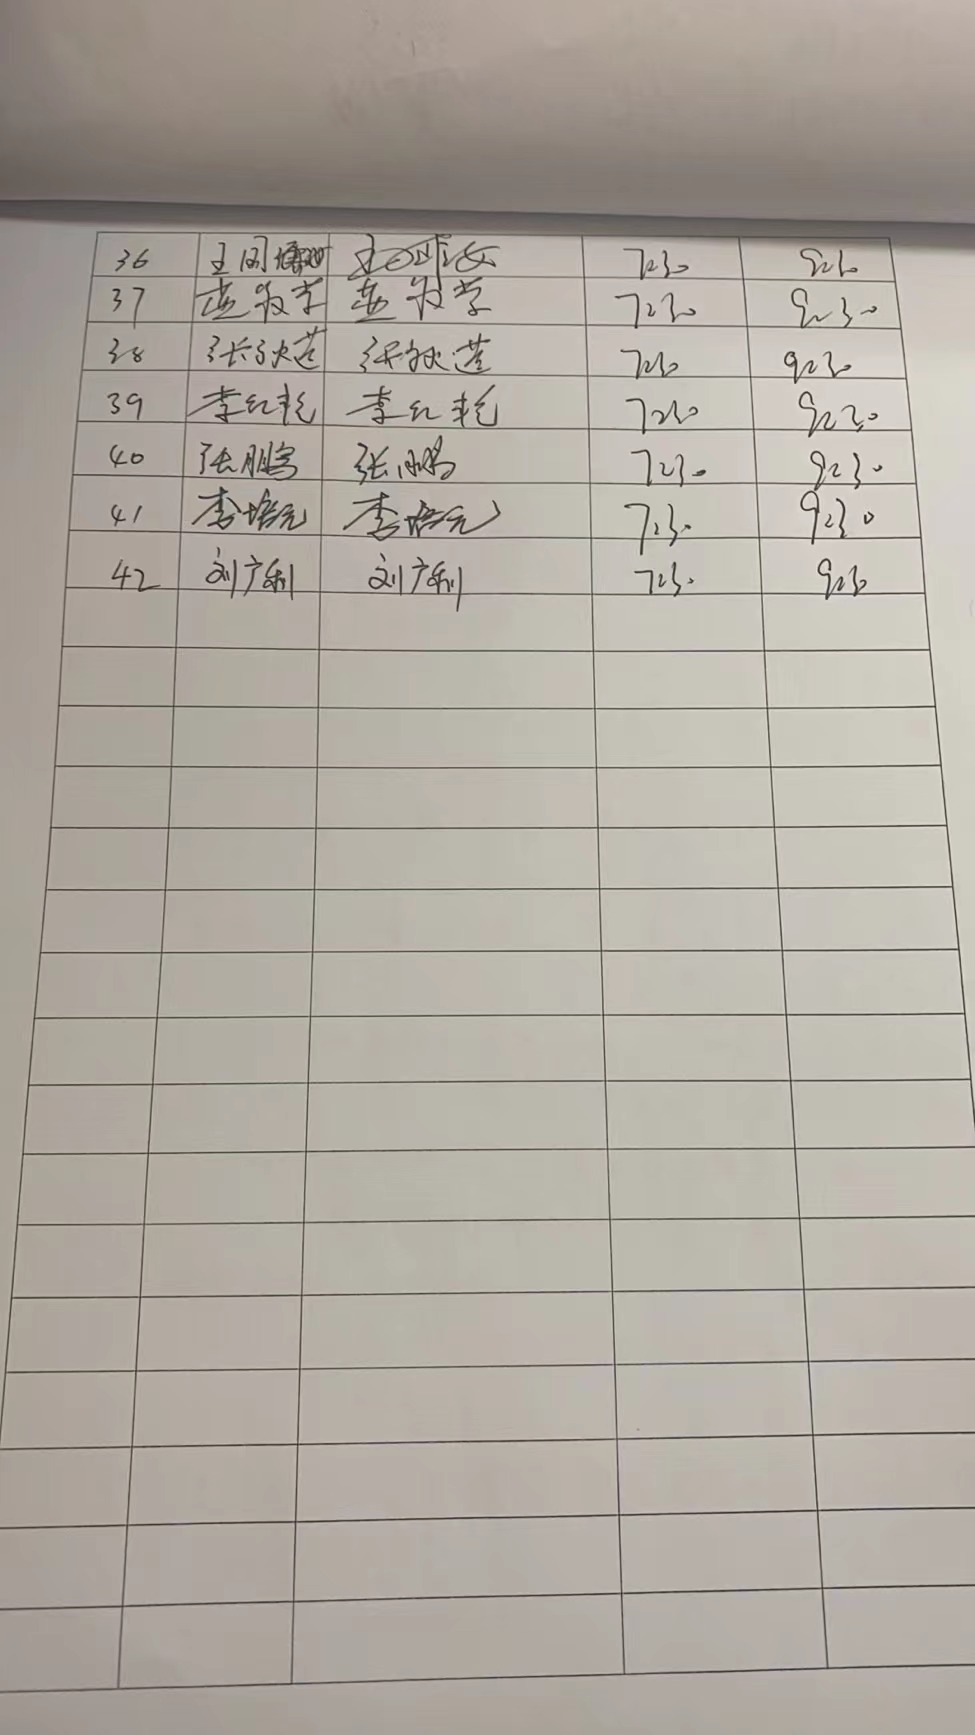 36 王 7:30 9:30
37 孟敬学 孟敬学 7:30 9:30
38 张秋莲 张秋莲 7:30 9:30
39 李红艳 李红艳 7:30 9:30
40 张鹏 张鹏 7:30 9:30
41 李培元 李培元 7:30 9:30
42 刘广利 刘广利 7:30 9:30